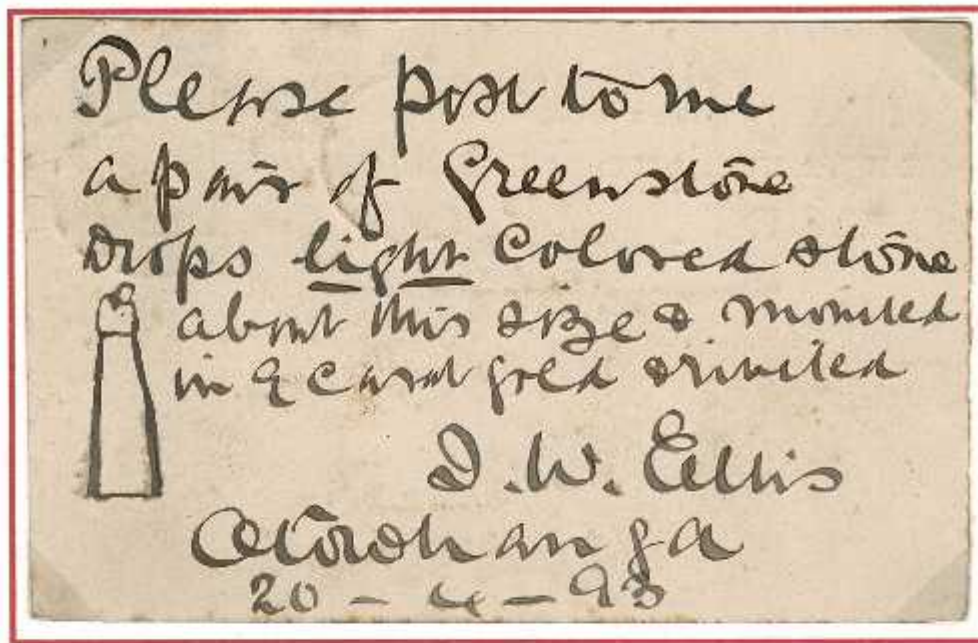 Please post to me
a pair of Greenstone
drops light colored stone
about this size & mounted
in 9 carat gold & riveted
J. W. Ellis
Otorohanga
20 - 4 - 93